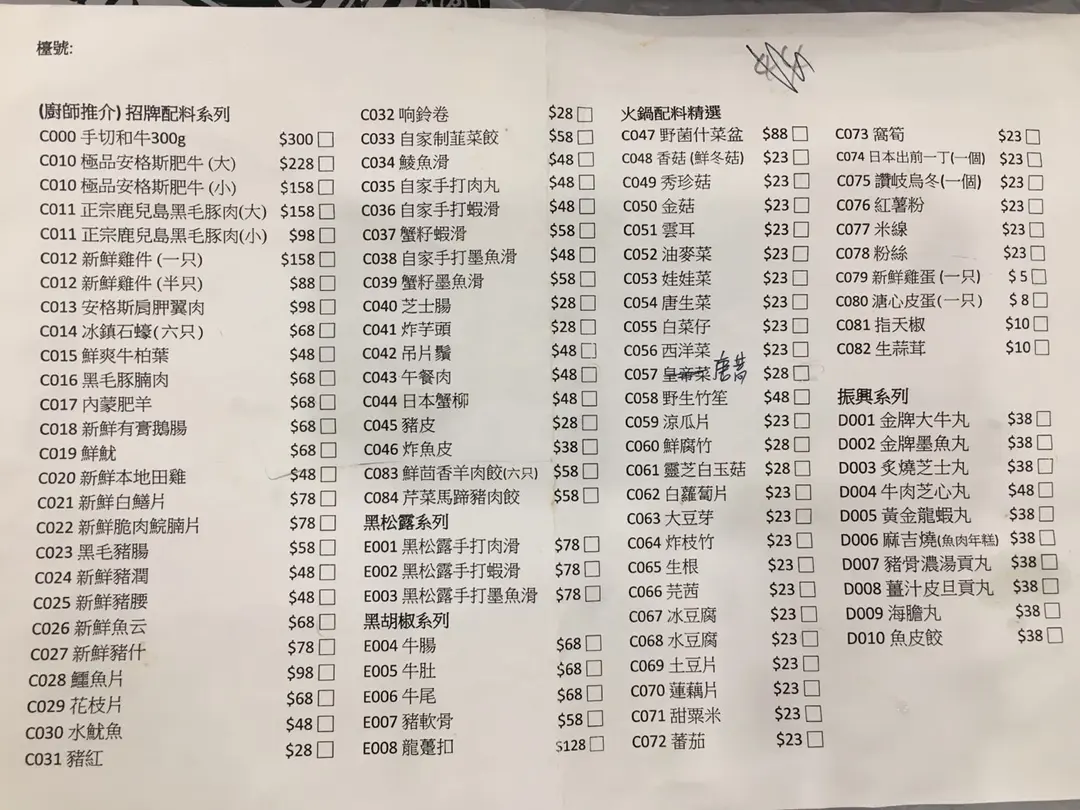 檯號:
(廚師推介) 招牌配料系列
C000 手切和牛300g $300
C010 極品安格斯肥牛 (大) $228
C010 極品安格斯肥牛 (小) $158
C011 正宗鹿兒島黑毛豚肉(大) $158
C011 正宗鹿兒島黑毛豚肉(小) $98
C012 新鮮雞件 (一只) $158
C012 新鮮雞件 (半只) $88
C013 安格斯肩胛翼肉 $98
C014 冰鎮石蠔(六只) $68
C015 鮮爽牛柏葉 $48
C016 黑毛豚腩肉 $68
C017 內蒙肥羊 $68
C018 新鮮有膏鵝腸 $68
C019 鮮魷 $68
C020 新鮮本地田雞 $48
C021 新鮮白鱔片 $78
C022 新鮮脆肉鯇腩片 $78
C023 黑毛豬腸 $58
C024 新鮮豬潤 $48
C025 新鮮豬腰 $48
C026 新鮮魚云 $68
C027 新鮮豬什 $78
C028 鱷魚片 $98
C029 花枝片 $68
C030 水魷魚 $48
C031 豬紅 $28
C032 响鈴卷 $28
C033 自家制韮菜餃 $58
C034 鯪魚滑 $48
C035 自家手打肉丸 $48
C036 自家手打蝦滑 $48
C037 蟹籽蝦滑 $58
C038 自家手打墨魚滑 $48
C039 蟹籽墨魚滑 $58
C040 芝士腸 $28
C041 炸芋頭 $28
C042 吊片鬚 $48
C043 午餐肉 $48
C044 日本蟹柳 $48
C045 豬皮 $28
C046 炸魚皮 $38
C083 鮮茴香羊肉餃(六只) $58
C084 芹菜馬蹄豬肉餃 $58
黑松露系列
E001 黑松露手打肉滑 $78
E002 黑松露手打蝦滑 $78
E003 黑松露手打墨魚滑 $78
黑胡椒系列
E004 牛腸 $68
E005 牛肚 $68
E006 牛尾 $68
E007 豬軟骨 $58
E008 龍躉扣 $128
火鍋配料精選
C047 野菌什菜盆 $88
C048 香菇 (鮮冬菇) $23
C049 秀珍菇 $23
C050 金菇 $23
C051 雲耳 $23
C052 油麥菜 $23
C053 娃娃菜 $23
C054 唐生菜 $23
C055 白菜仔 $23
C056 西洋菜 $23
C057 皇帝菜 $28
C058 野生竹笙 $48
C059 涼瓜片 $23
C060 鮮腐竹 $28
C061 靈芝白玉菇 $28
C062 白蘿蔔片 $23
C063 大豆芽 $23
C064 炸枝竹 $23
C065 生根 $23
C066 芫茜 $23
C067 冰豆腐 $23
C068 水豆腐 $23
C069 土豆片 $23
C070 蓮藕片 $23
C071 甜粟米 $23
C072 蕃茄 $23
C073 窩筍 $23
C074 日本出前一丁(一個) $23
C075 讚岐烏冬(一個) $23
C076 紅薯粉 $23
C077 米線 $23
C078 粉絲 $23
C079 新鮮雞蛋 (一只) $5
C080 溏心皮蛋 (一只) $8
C081 指天椒 $10
C082 生蒜茸 $10
振興系列
D001 金牌大牛丸 $38
D002 金牌墨魚丸 $38
D003 炙燒芝士丸 $38
D004 牛肉芝心丸 $48
D005 黃金龍蝦丸 $38
D006 麻吉燒(魚肉年糕) $38
D007 豬骨濃湯貢丸 $38
D008 薑汁皮旦貢丸 $38
D009 海膽丸 $38
D010 魚皮餃 $38